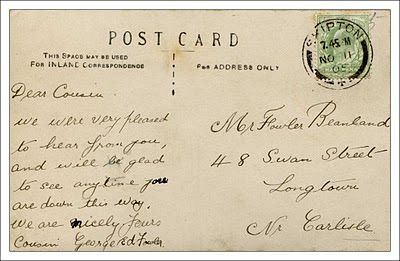 POST CARD
THIS SPACE MAY BE USED
FOR INLAND CORRESPONDENCE
FOR ADDRESS ONLY
SKIPTON
7.45 M
NO 11
05
Dear Cousin
we were very pleased
to hear from you,
and will be glad
to see anytime you
are down this way.
We are nicely Yours
Cousin George Ed Fowler
Mr Fowler Beanland
48 Swan Street
Longtown
Nr Carlisle